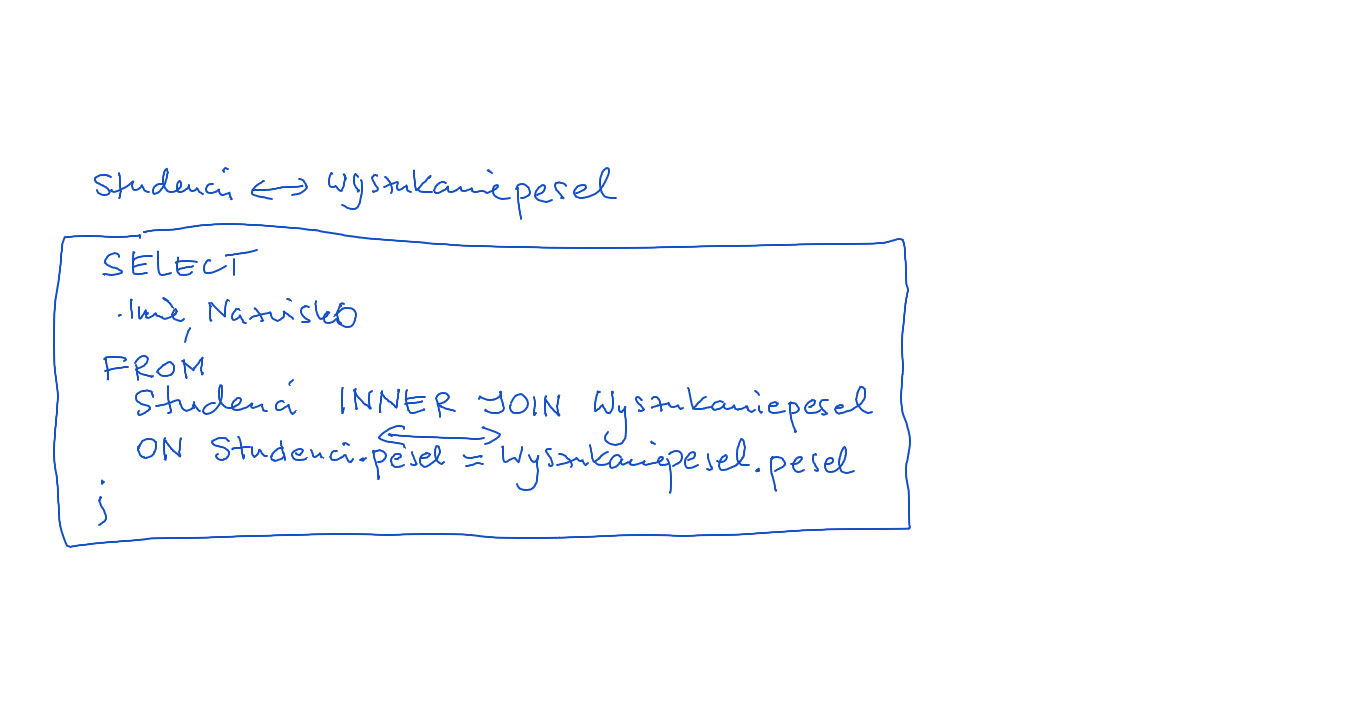 Studenci ↔ Wyszukaniepesel
SELECT
Imie, Nazwisko
FROM
Studenci INNER JOIN Wyszukaniepesel
ON Studenci.pesel = Wyszukaniepesel.pesel
;